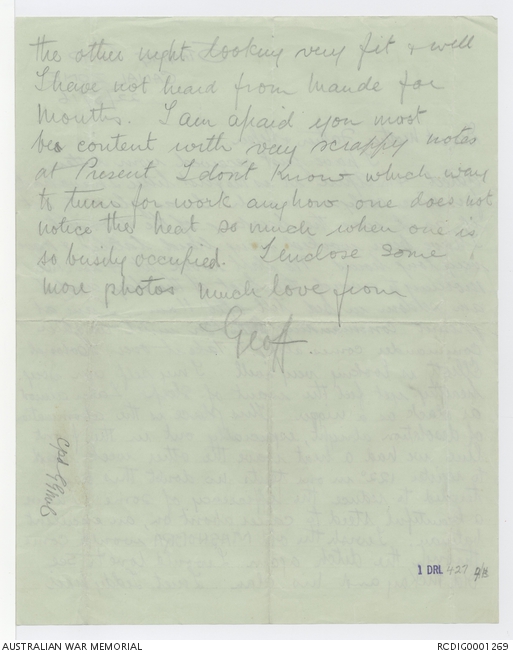 the other night looking very fit & well
I have not heard from Maude for
months. I am afraid you most
be content with very scrappy notes
at Present I don't know which way
to turn for work anyhow one does not
notice the heat so much when one is
so busily occupied. I enclose some
more photos much love from
Geoff
1 DRL 427
AUSTRALIAN WAR MEMORIAL
RCDIG0001269